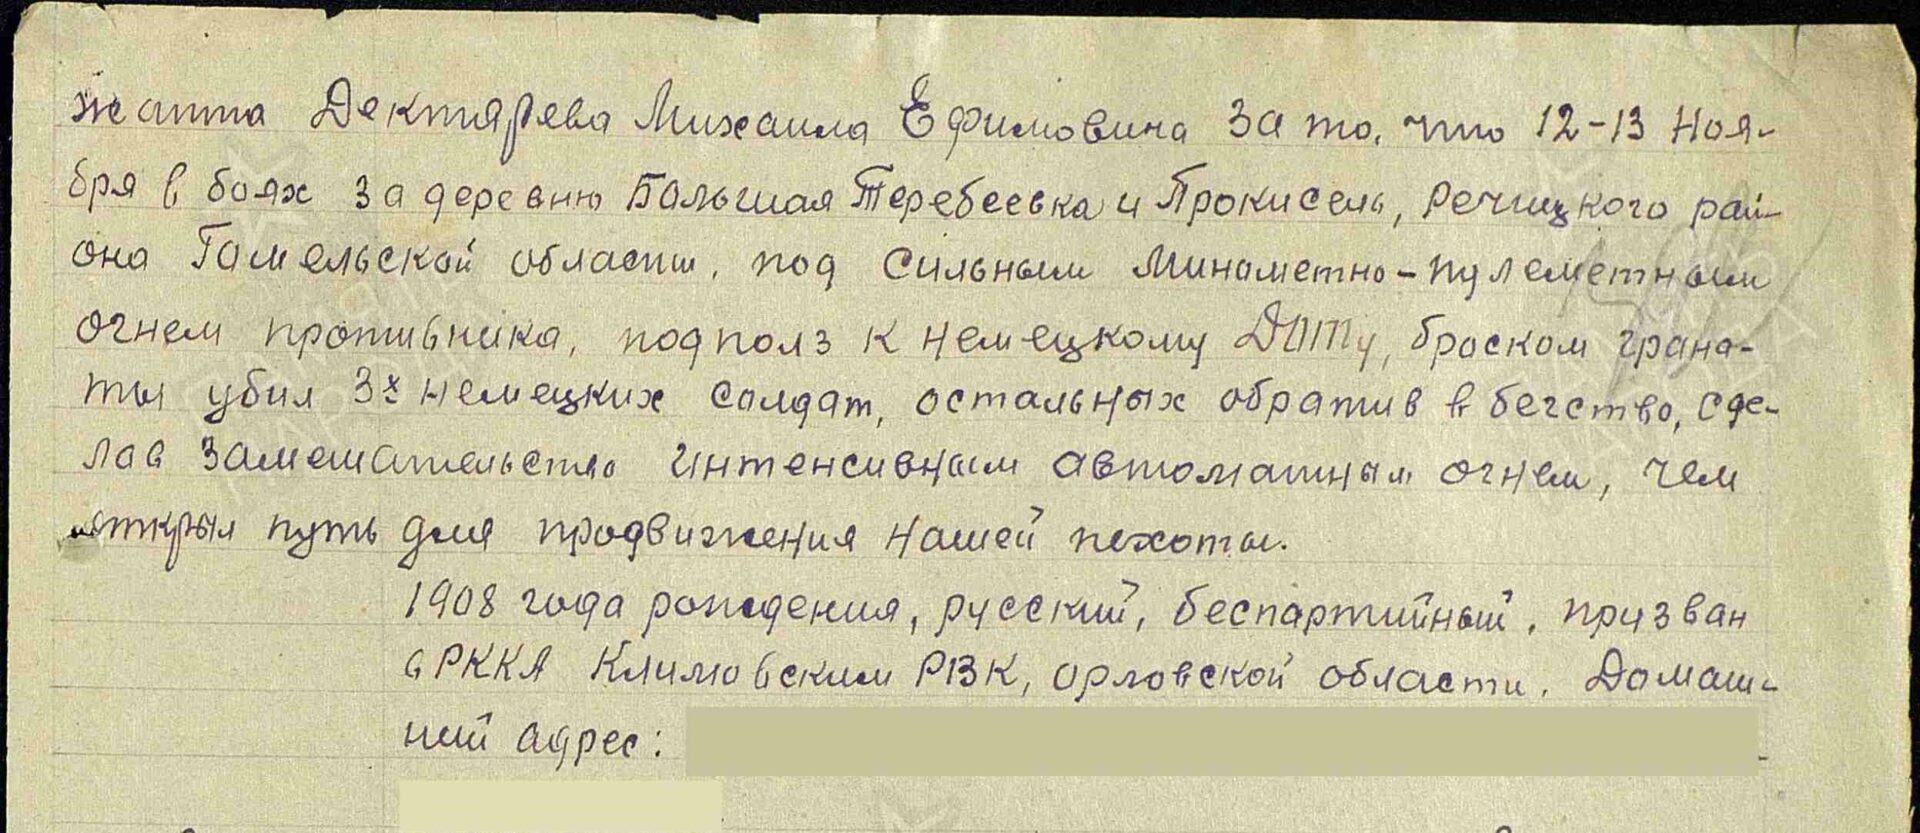 жанта Дектярева Михаила Ефимовича за то, что 12-13 Ноя-
бря в боях за деревню Большая Теребеевка и Прокисель, Речицкого рай-
она Гомельской области, под сильным минометно-пулеметным
огнем противника, подполз к немецкому ДОТу, броском грана-
ты убил 3х немецких солдат, остальных обратив в бегство, сде-
лав замешательство интенсивным автоматным огнем, чем
открыл путь для продвижения нашей пехоты.
1908 года рождения, русский, беспартийный, призван
в РККА Климовским РВК, орловской области. Домаш-
ний адрес: